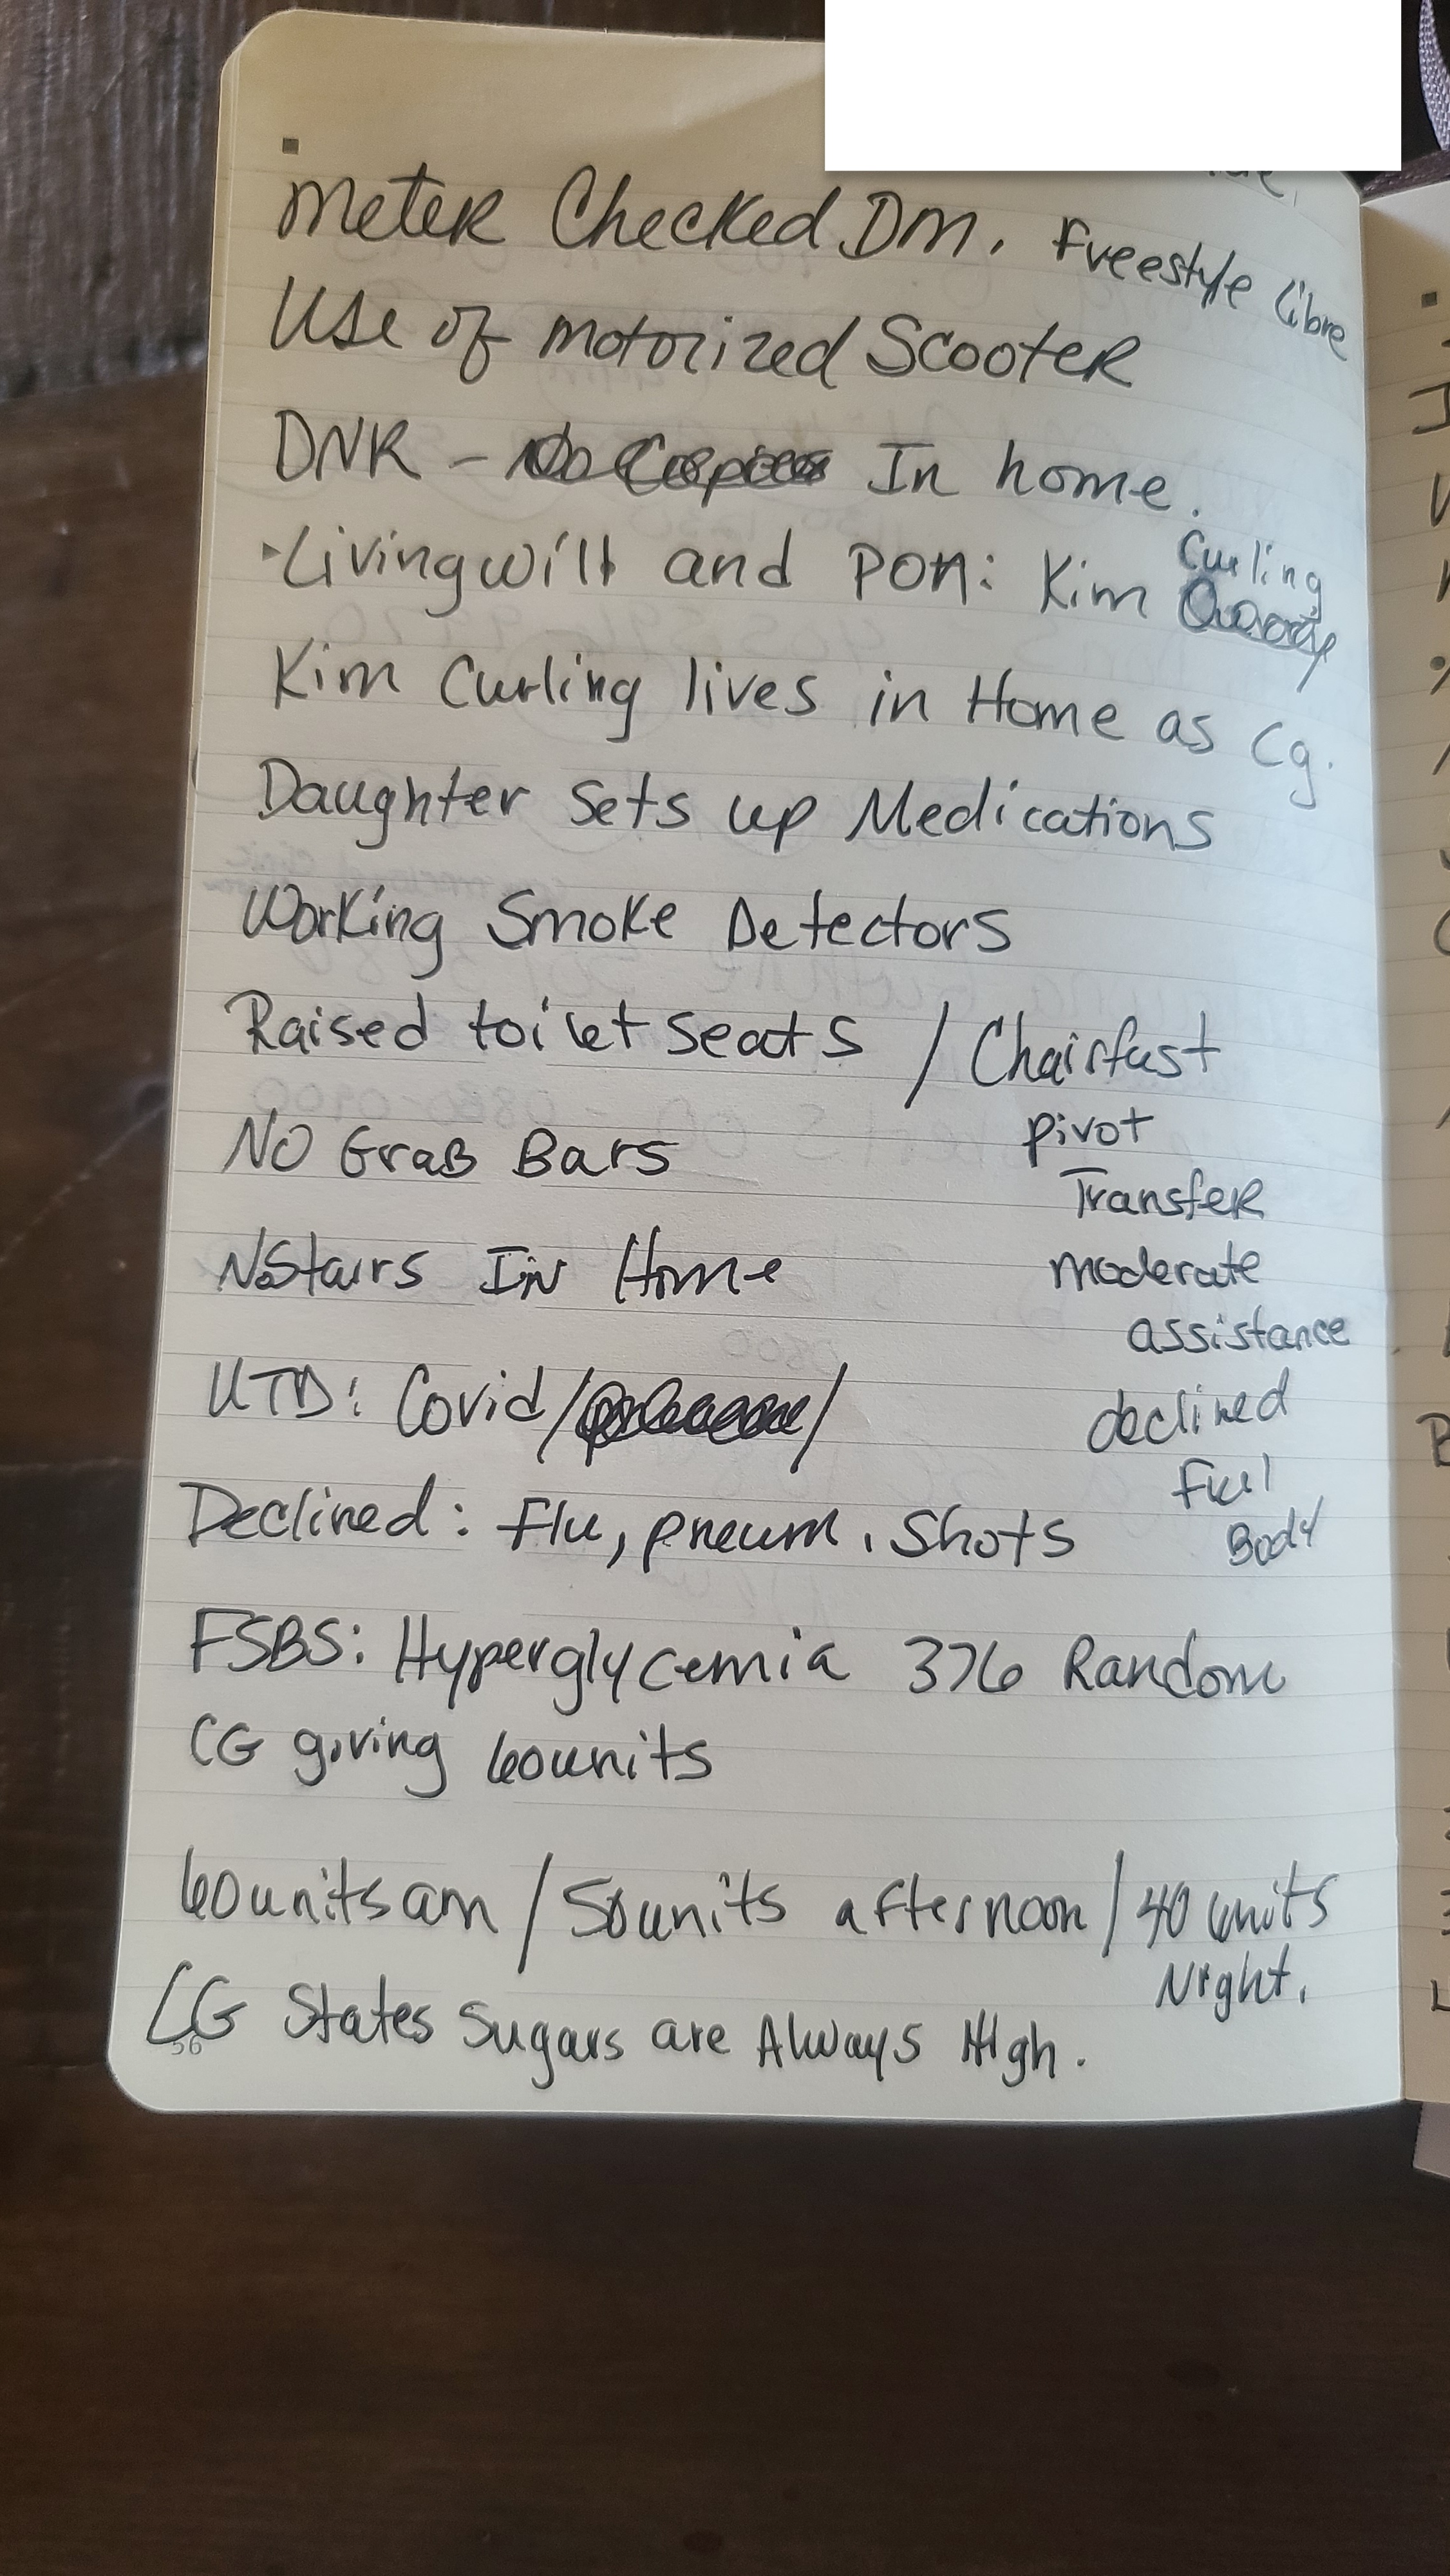 Meter Checked DM. Freestyle Libre
Use of Motorized Scooter
DNR - In home.
Living will and POA: Kim Curling
Kim Curling lives in Home as Cg.
Daughter Sets up Medications
Working Smoke Detectors
Raised toilet seats / Chairfast
pivot
Transfer
moderate
assistance
declined
Full
Body
No Grab Bars
No Stairs In Home
UTD: Covid/ /
Declined: Flu, pneum. Shots
FSBS: Hyperglycemia 376 Random
CG giving 60units
60units am / 50units afternoon / 40 units
Night.
CG States Sugars are Always High.
56